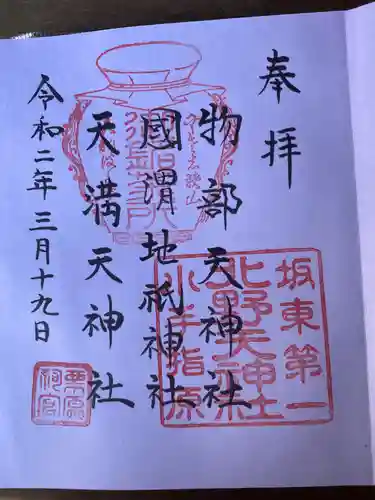 奉拝
物部天神社
國渭地祇神社
天満天神社
令和二年三月十九日
坂東第一
北野天神社
小手指原
栗原
祠宮